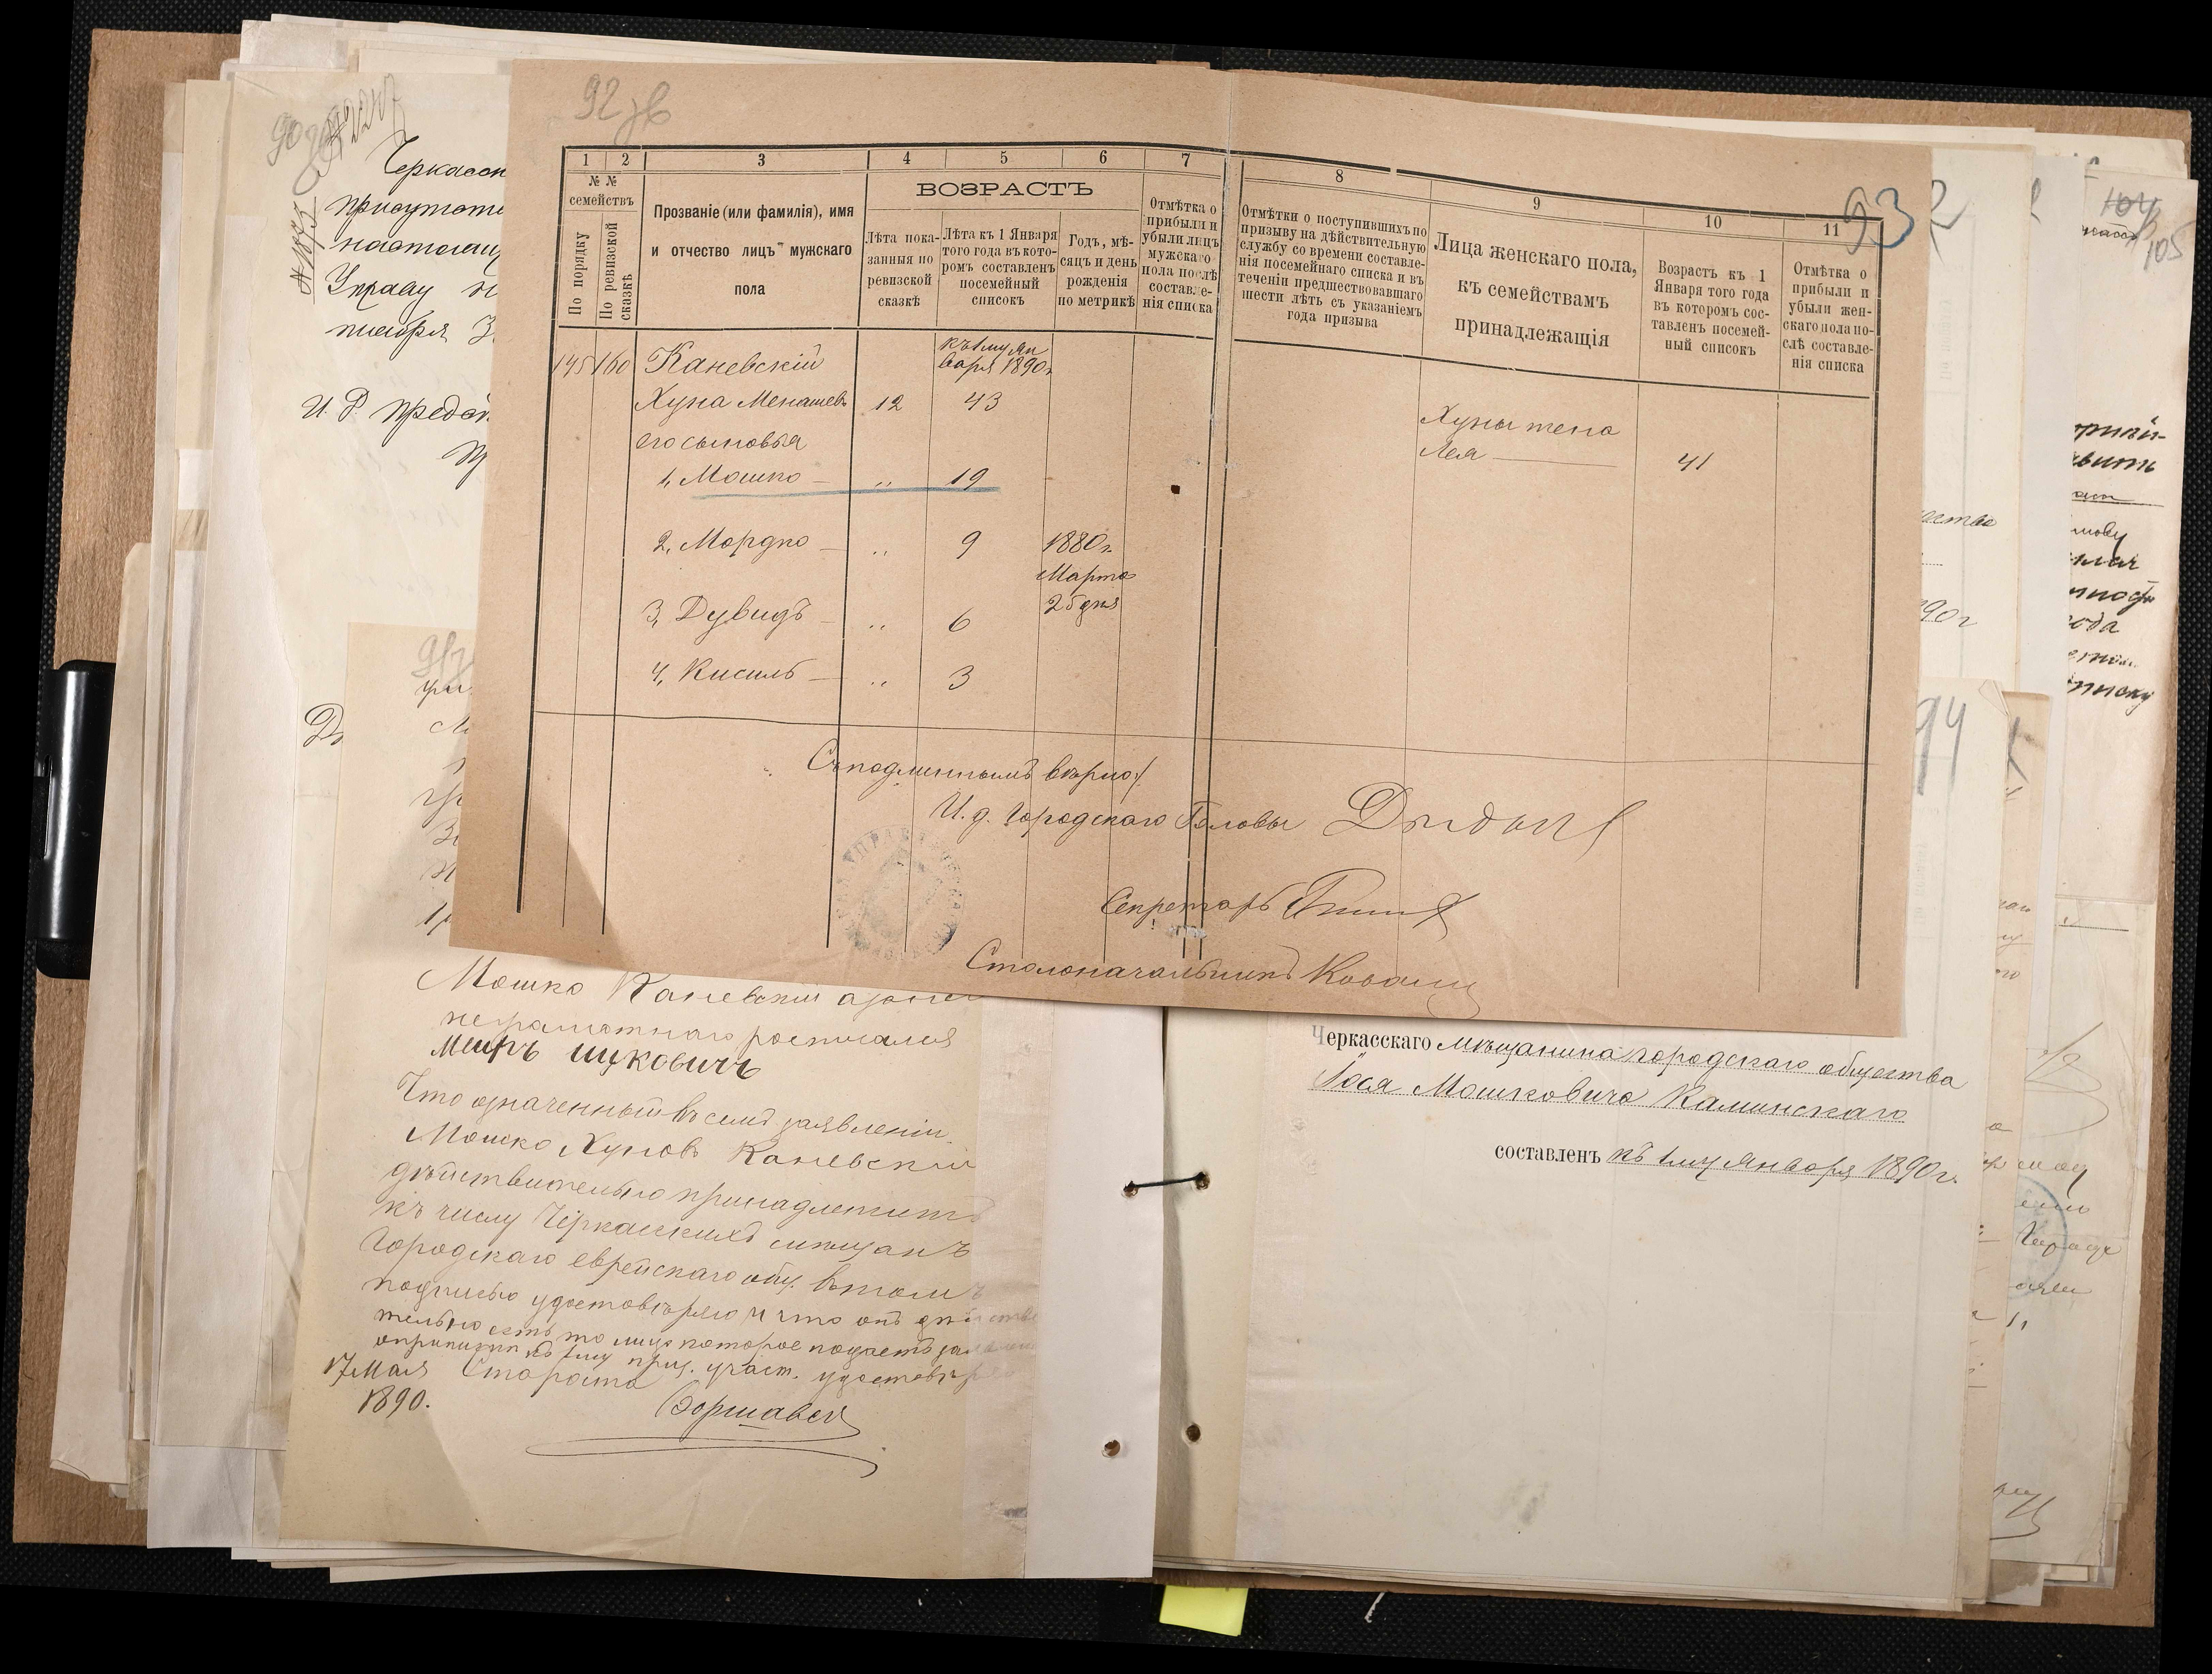 92 зв
1 2 3 4 5 6 7 8 9 10 11
93
№ №
семействъ
По порядку
По ревизской
сказкѣ
Прозваніе (или фамилія), имя
и отчество лицъ мужскаго
пола
ВОЗРАСТЪ
Лѣта пока-
занныя по
ревизской
сказкѣ
Лѣта къ 1 Января
того года въ кото-
ромъ составленъ
посемейный
списокъ
Годъ, мѣ-
сяцъ и день
рожденія
по метрикѣ
Отмѣтка о
прибыли и
убыли лицъ
мужскаго
пола послѣ
составле-
нія списка
Отмѣтки о поступившихъ по
призыву на дѣйствительную
службу со времени составле-
нія посемейнаго списка и въ
теченіи предшествовавшаго
шести лѣтъ съ указаніемъ
года призыва
Лица женскаго пола,
къ семействамъ
принадлежащія
Возрастъ къ 1
Января того года
въ которомъ сос-
тавленъ посемей-
ный списокъ
Отмѣтка о
прибыли и
убыли жен-
скаго пола по-
слѣ составле-
нія списка
145 160 Каневскій къ 1му Ян
варя 1890г.
Хуна Менашевъ 12 43
его сыновья
1, Мошко — „ 19
2, Мордко — „ 9 1880г.
Марта
25 дня
3, Дувидъ — „ 6
4, Кисиль — „ 3
Хуны жена
Лея — 41
Съ подлиннымъ вѣрно:
И. д. Городскаго Головы
Секретарь
Столоначальникъ
90
Черкасск
присутстві
настоящ
Управу
И. Д. предсѣ
Мошко Каневскій а за него
неграмотнаго росписался
Меиръ Ицковичъ
Что означенный въ семъ заявленіи
Мошко Хуновъ Каневскій
дѣйствительно принадлежитъ
къ числу Черкасскихъ мѣщанъ
Городскаго еврейскаго общ. въ томъ
подписью удостовѣряю и что онъ дѣйстви
тельно есть то лицо которое подаетъ заявленіе
о припискѣ къ 1му приз. участ. удостовѣряю
17 Мая Староста
1890.
94
Черкасскаго мѣщанина городскаго общества
Іося Мошковича Каминскаго
составленъ къ 1му Января 1890 г.
105
90г